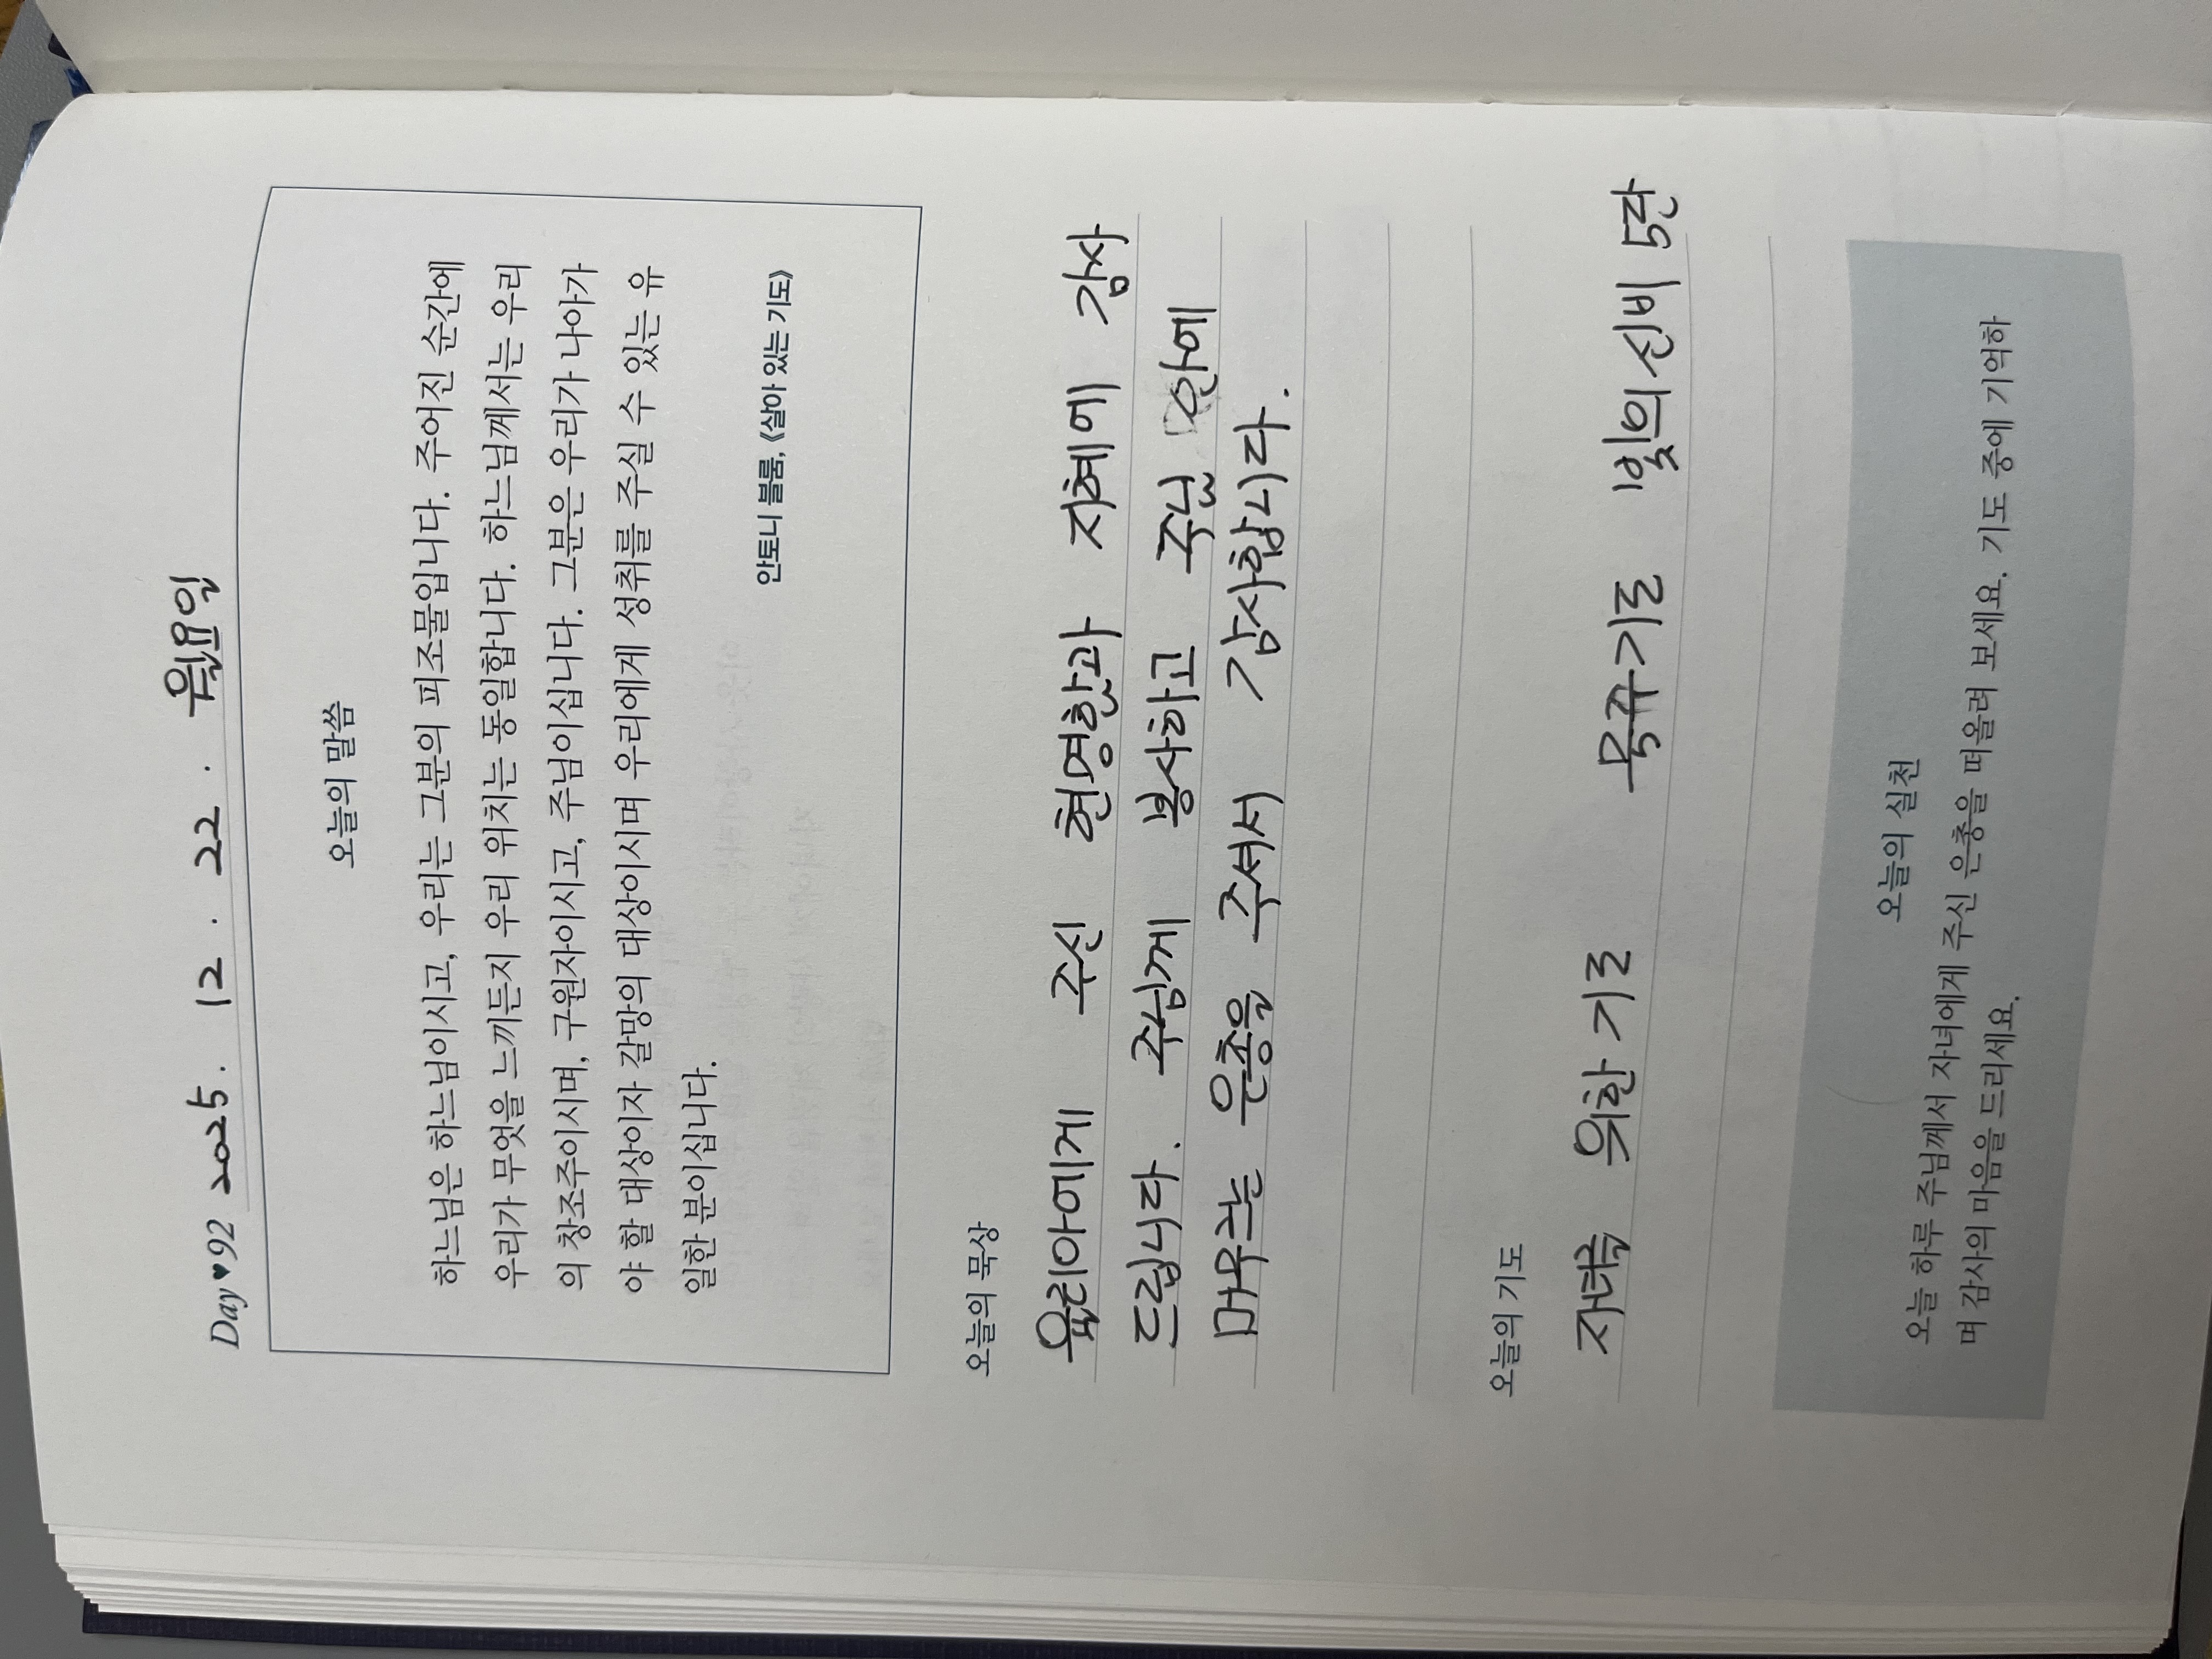 Day♥92 2025. 12. 22. 월요일
오늘의 말씀
하느님은 하느님이시고, 우리는 그분의 피조물입니다. 주어진 순간에
우리가 무엇을 느끼든지 우리 위치는 동일합니다. 하느님께서는 우리
의 창조주이시며, 구원자이시고, 주님이십니다. 그분은 우리가 나아가
야 할 대상이자 갈망의 대상이시며 우리에게 성취를 주실 수 있는 유
일한 분이십니다.
안토니 블룸, 《살아 있는 기도》
오늘의 묵상
율리아에게 주신 현명함과 지혜에 감사
드립니다. 주님께 봉사하고 주님 안에
머무르는 은총을 주셔서 감사합니다.
오늘의 기도
자녀를 위한 기도 묵주기도 빛의 신비 5단
오늘의 실천
오늘 하루 주님께서 자녀에게 주신 은총을 떠올려 보세요. 기도 중에 기억하
며 감사의 마음을 드리세요.